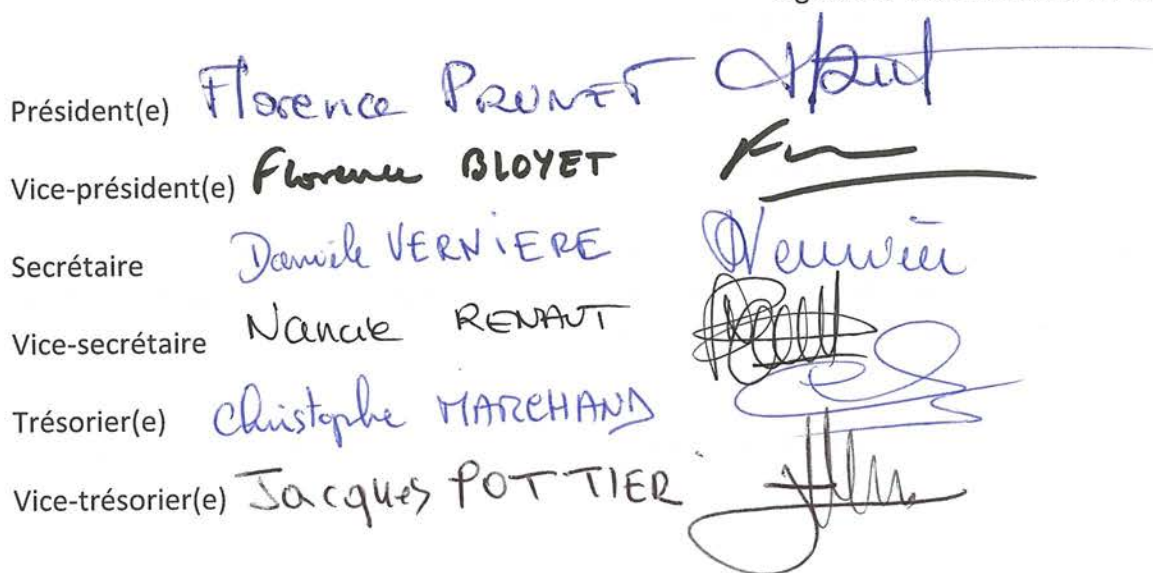 Président(e) Florence PRUNET
Vice-président(e) Florence BLOYET
Secrétaire Danièle VERNIERE
Vice-secrétaire Nancie RENAUT
Trésorier(e) Christophe MARCHAND
Vice-trésorier(e) Jacques POTTIER